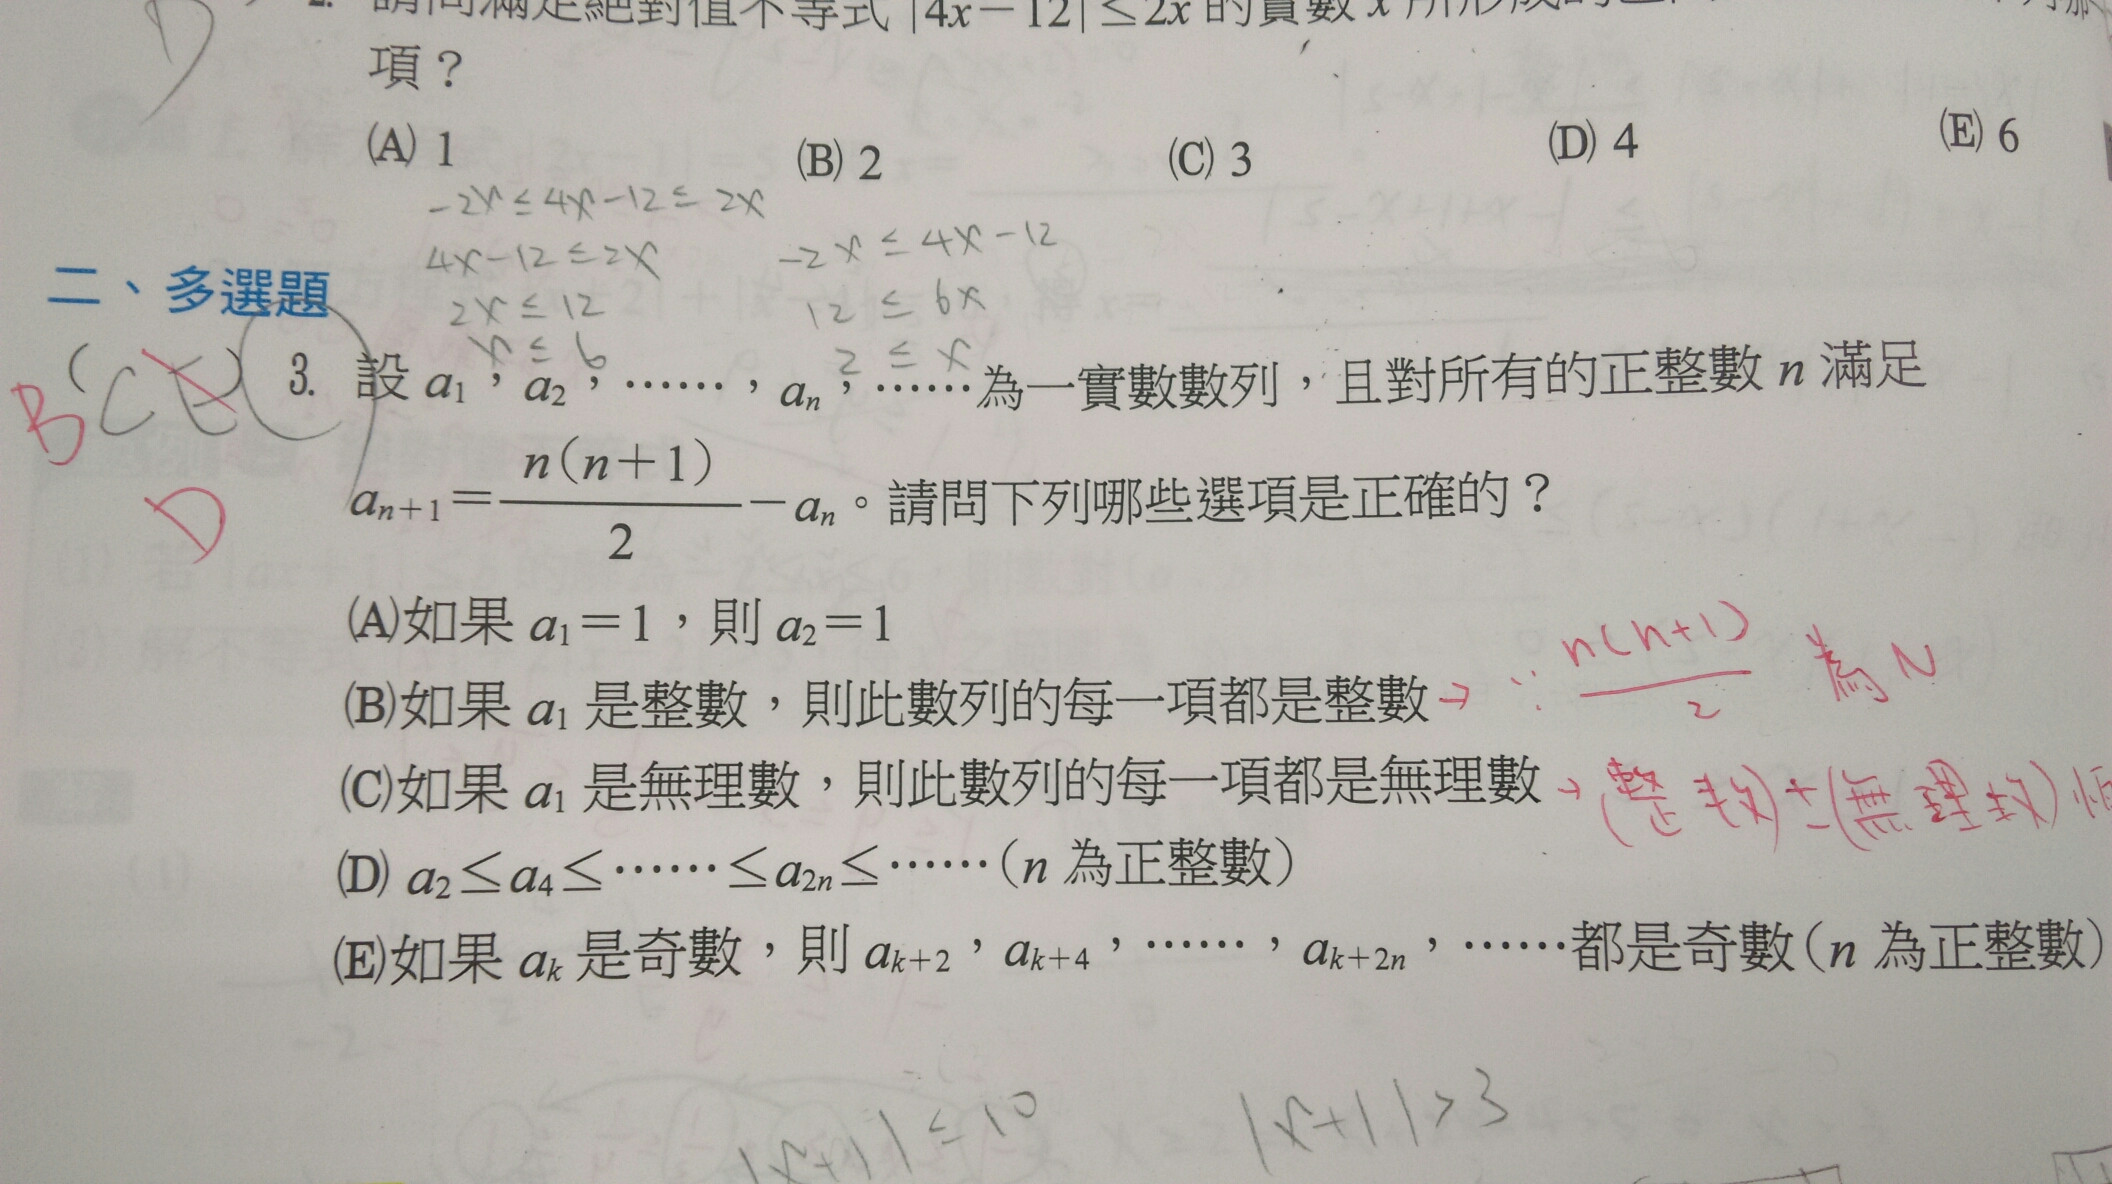 2. 請問滿足絕對值不等式 |4x－12|≤2x 的實數 x 所形成的
項？
(A) 1 (B) 2 (C) 3 (D) 4 (E) 6
-2x ≤ 4x-12 ≤ 2x
4x-12 ≤ 2x -2x ≤ 4x-12
2x ≤ 12 12 ≤ 6x
x ≤ 6 2 ≤ x
二、多選題
B(CE) 3. 設 a1，a2，……，an，……為一實數數列，且對所有的正整數 n 滿足
D an+1＝n(n＋1)/2－an。請問下列哪些選項是正確的？
(A)如果 a1＝1，則 a2＝1
(B)如果 a1 是整數，則此數列的每一項都是整數→ ∵ n(n+1)/2 為N
(C)如果 a1 是無理數，則此數列的每一項都是無理數→(整數)±(無理數)
(D) a2≤a4≤……≤a2n≤……(n 為正整數)
(E)如果 ak 是奇數，則 ak+2，ak+4，……，ak+2n，……都是奇數(n 為正整數)
|x+1| ≤ 10 |x+1| > 3